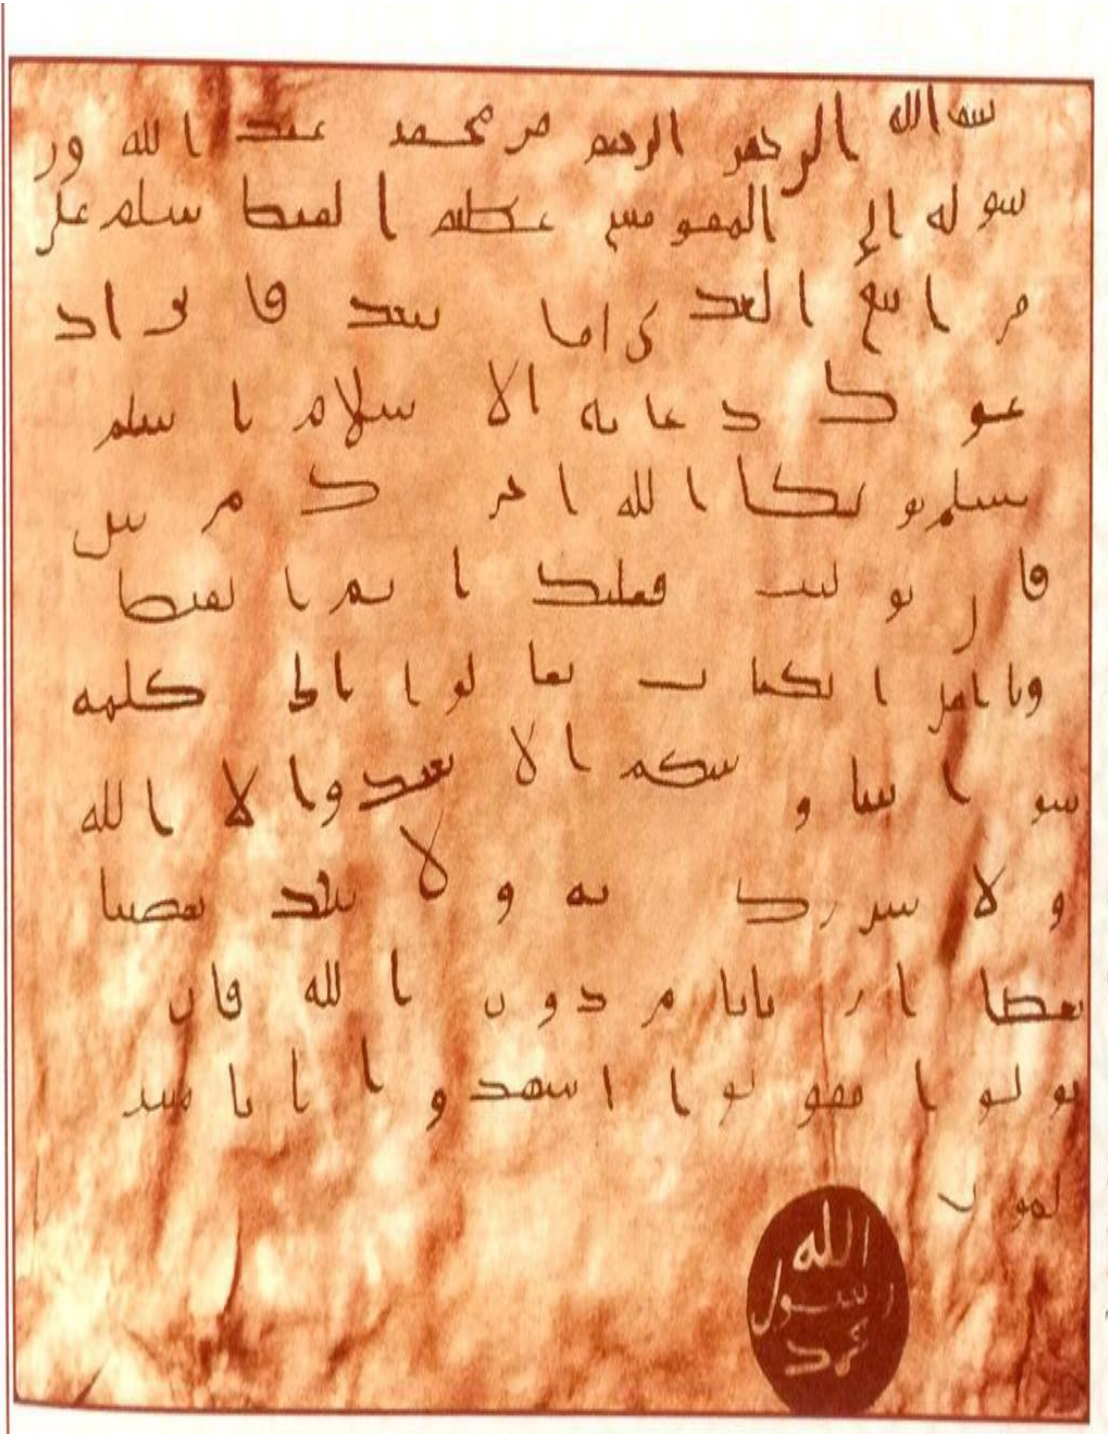 بسم الله الرحمن الرحيم من محمد عبد الله ور
سوله إلى المقوقس عظيم القبط سلام على
من اتبع الهدى اما بعد فانى اد
عوك بدعاية الاسلام اسلم
تسلم يؤتك الله اجرك مرتين
فان توليت فعليك اثم القبط
ويا اهل الكتاب تعالوا الى كلمة
سواء بيننا وبينكم الا نعبد الا الله
ولا نشرك به ولا يتخذ بعضنا
بعضا اربابا من دون الله فان
تولوا فقولوا اشهدوا بانا مسـ
لمون
الله
رسول
محمد